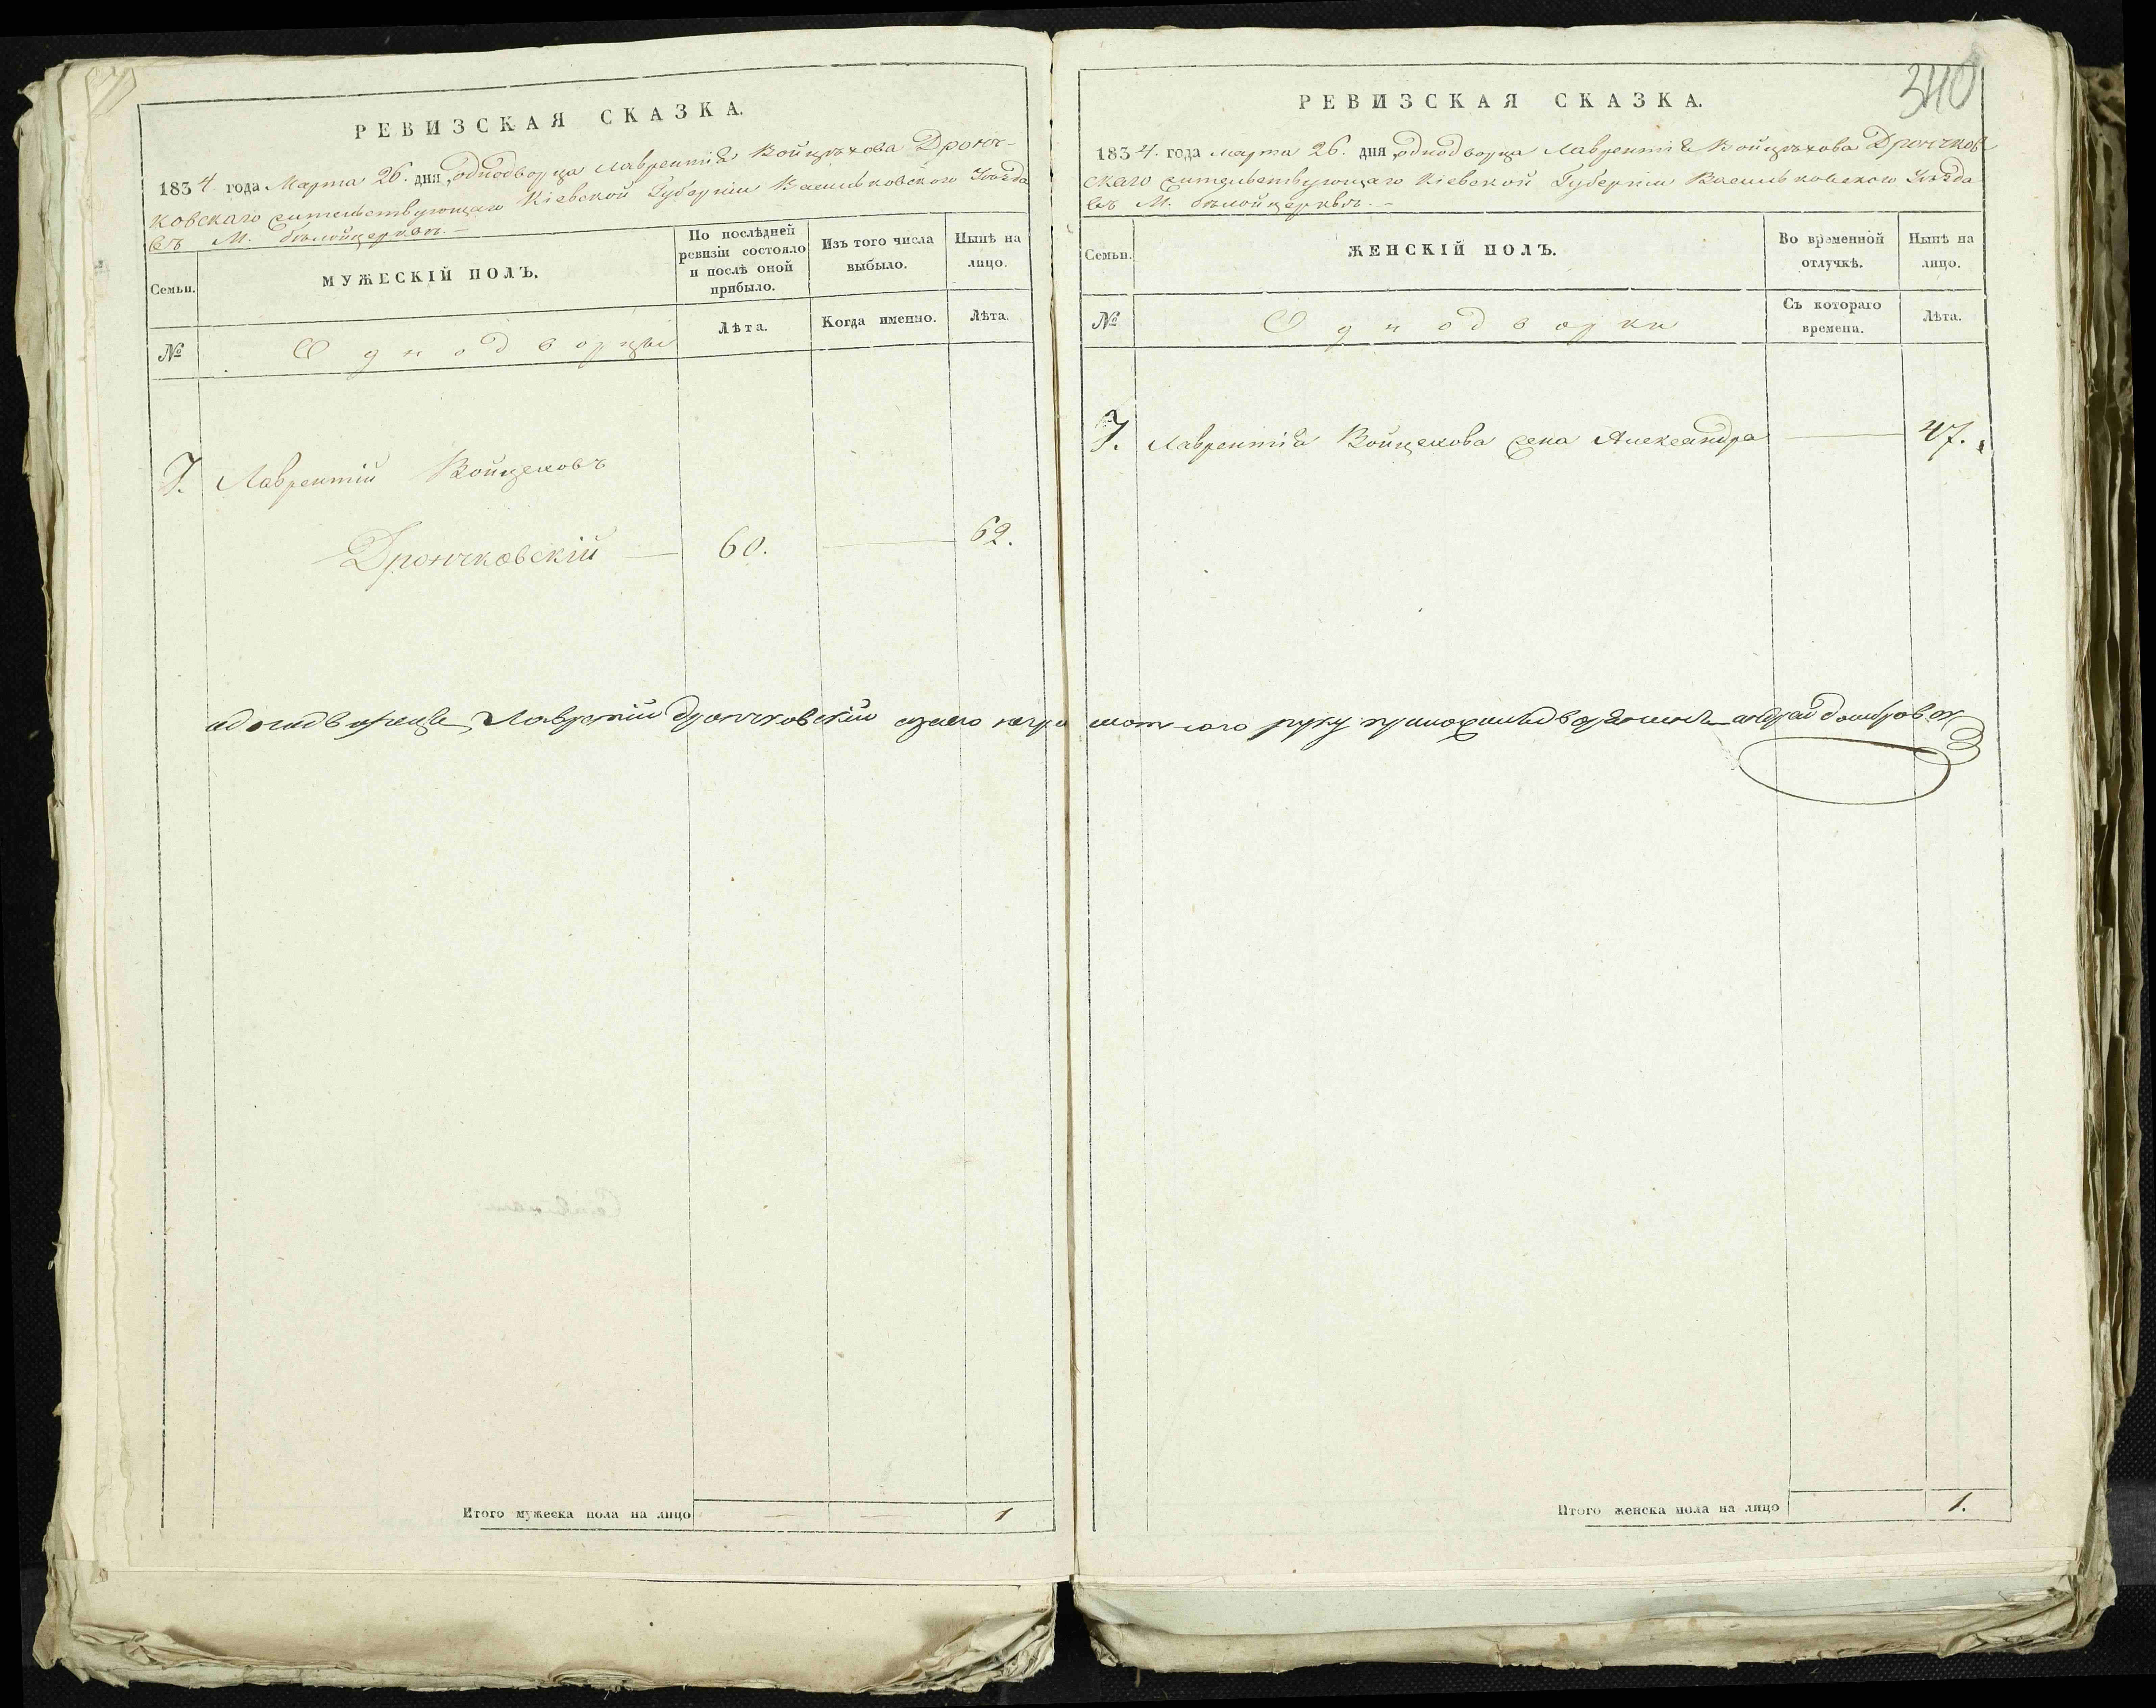 РЕВИЗСКАЯ СКАЗКА.
1834 года Марта 26. дня однодворца Лаврентія Войцѣхова Дронч-
ковскаго жительствующаго Кіевской Губерніи Васильковского Уѣзда
въ М. бѣлойцерквѣ. —
Семьи.
МУЖЕСКІЙ ПОЛЪ.
По послѣдней
ревизіи состояло
и послѣ оной
прибыло.
Изъ того числа
выбыло.
Нынѣ на
лицо.
№
Однодворцы
Лѣта.
Когда именно.
Лѣта.
7. Лаврентій Войцеховъ
Дрончковскій — 60. — 62.
Итого мужеска пола на лицо — — 1
340
РЕВИЗСКАЯ СКАЗКА.
1834. года марта 26. дня однодворца Лаврентія Войцѣхова Дрончков
скаго жительствующаго Кіевской Губерніи Васильковского Уѣзда
въ М. бѣлойцерквѣ. —
Семьи.
ЖЕНСКІЙ ПОЛЪ.
Во временной
отлучкѣ.
Нынѣ на
лицо.
№
Однодворки
Съ котораго
времени.
Лѣта.
7. Лаврентія Войцехова жена Александра — 47.
Лаврентій Дрончковский негра мотного руку приложил дворянинъ андрей
Итого женска пола на лицо 1.